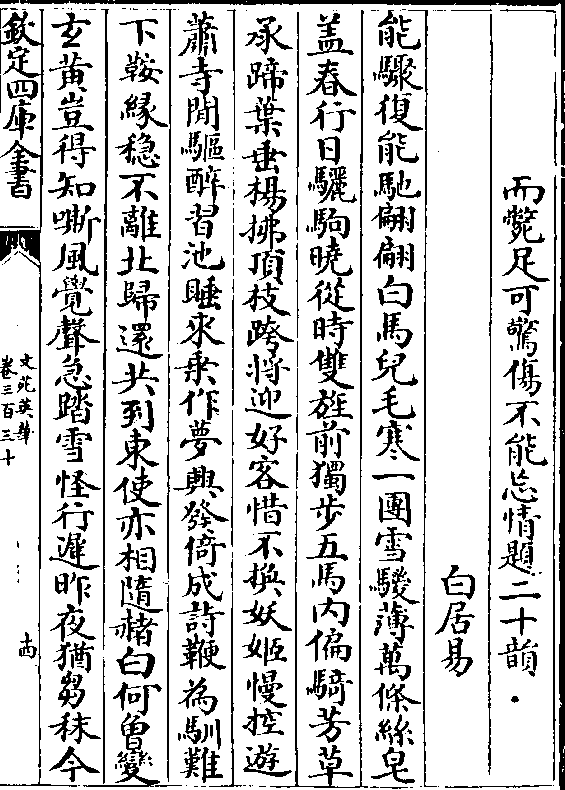 而斃足可驚傷不能忘情題二十韻
白居易
能驟復能馳翩翩白馬兒毛寒一團雪騣薄萬條絲皂
盖春行日驪駒曉從時雙旌前獨步五馬内偏騎芳草
承蹄葉垂楊拂頂枝跨將迎好客惜不換妖姬慢控遊
蕭寺閒驅醉習池睡來乗作夢興發倚成詩鞭為馴難
下鞍緣穏不離北歸還共到東使亦相隨赭白何曾變
玄黄豈得知嘶風覺聲急踏雪怪行遲昨夜猶芻秣今
欽定四庫全書
文苑英華
卷三百三十
古